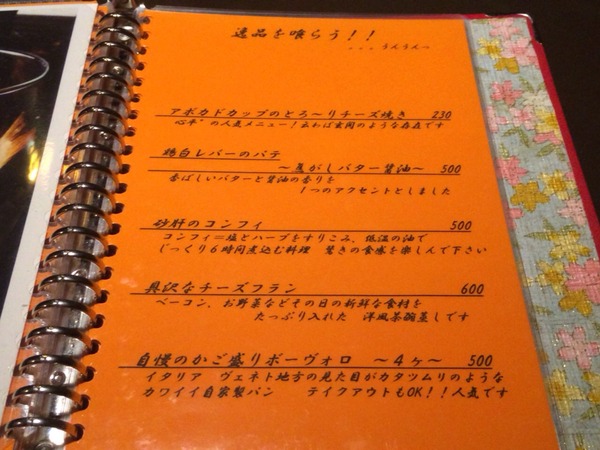 逸品を喰らう！！
...うんうんっ
アボカドカップのとろ～りチーズ焼き 230
心平"の人気メニュー！云わば玄関のような存在です
鶏白レバーのパテ
～焦がしバター醤油～ 500
香ばしいバターと醤油の香りを
1つのアクセントとしました
砂肝のコンフィ 500
コンフィ＝塩とハーブをすりこみ、低温の油で
じっくり6時間煮込む料理 驚きの食感を楽しんで下さい
具沢なチーズフラン 600
ベーコン、お野菜などその日の新鮮な食材を
たっぷり入れた 洋風茶碗蒸しです
自慢のかご盛りボーヴォロ ～4ヶ～ 500
イタリア ヴェネト地方の見た目がカタツムリのような
カワイイ自家製パン テイクアウトもOK！！人気です